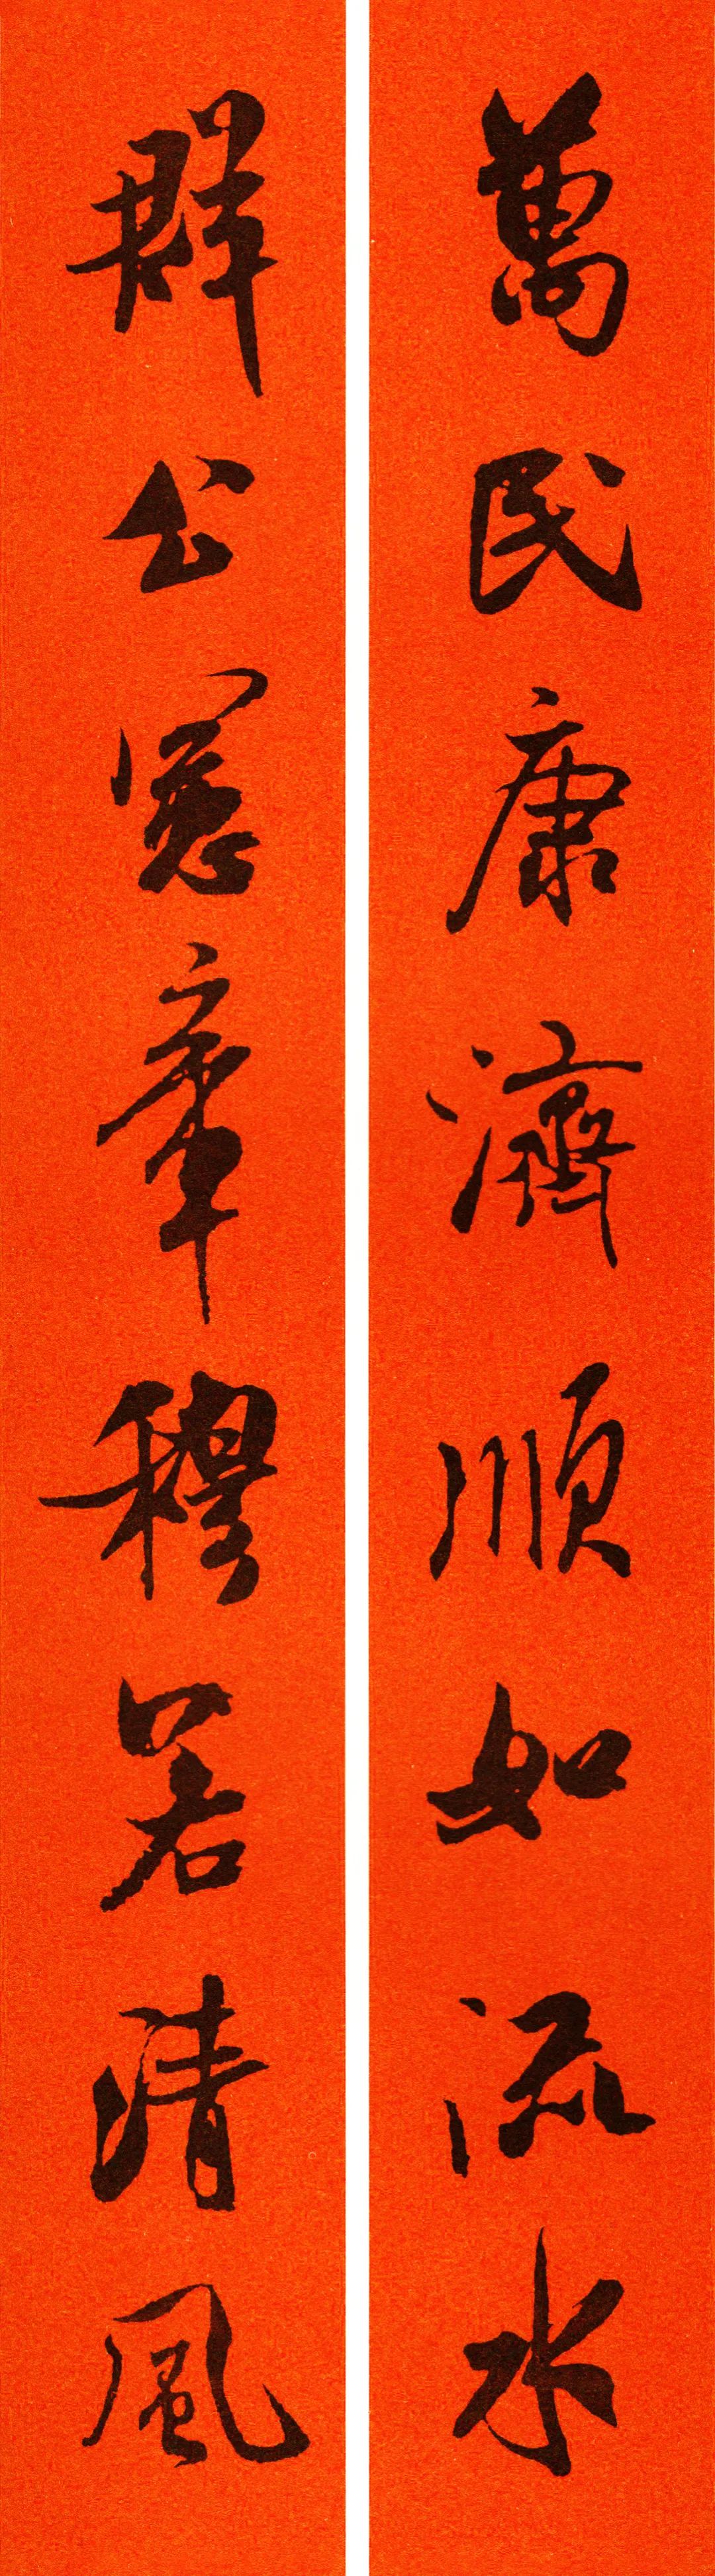 萬民康濟順如流水
群公憲章穆若清風